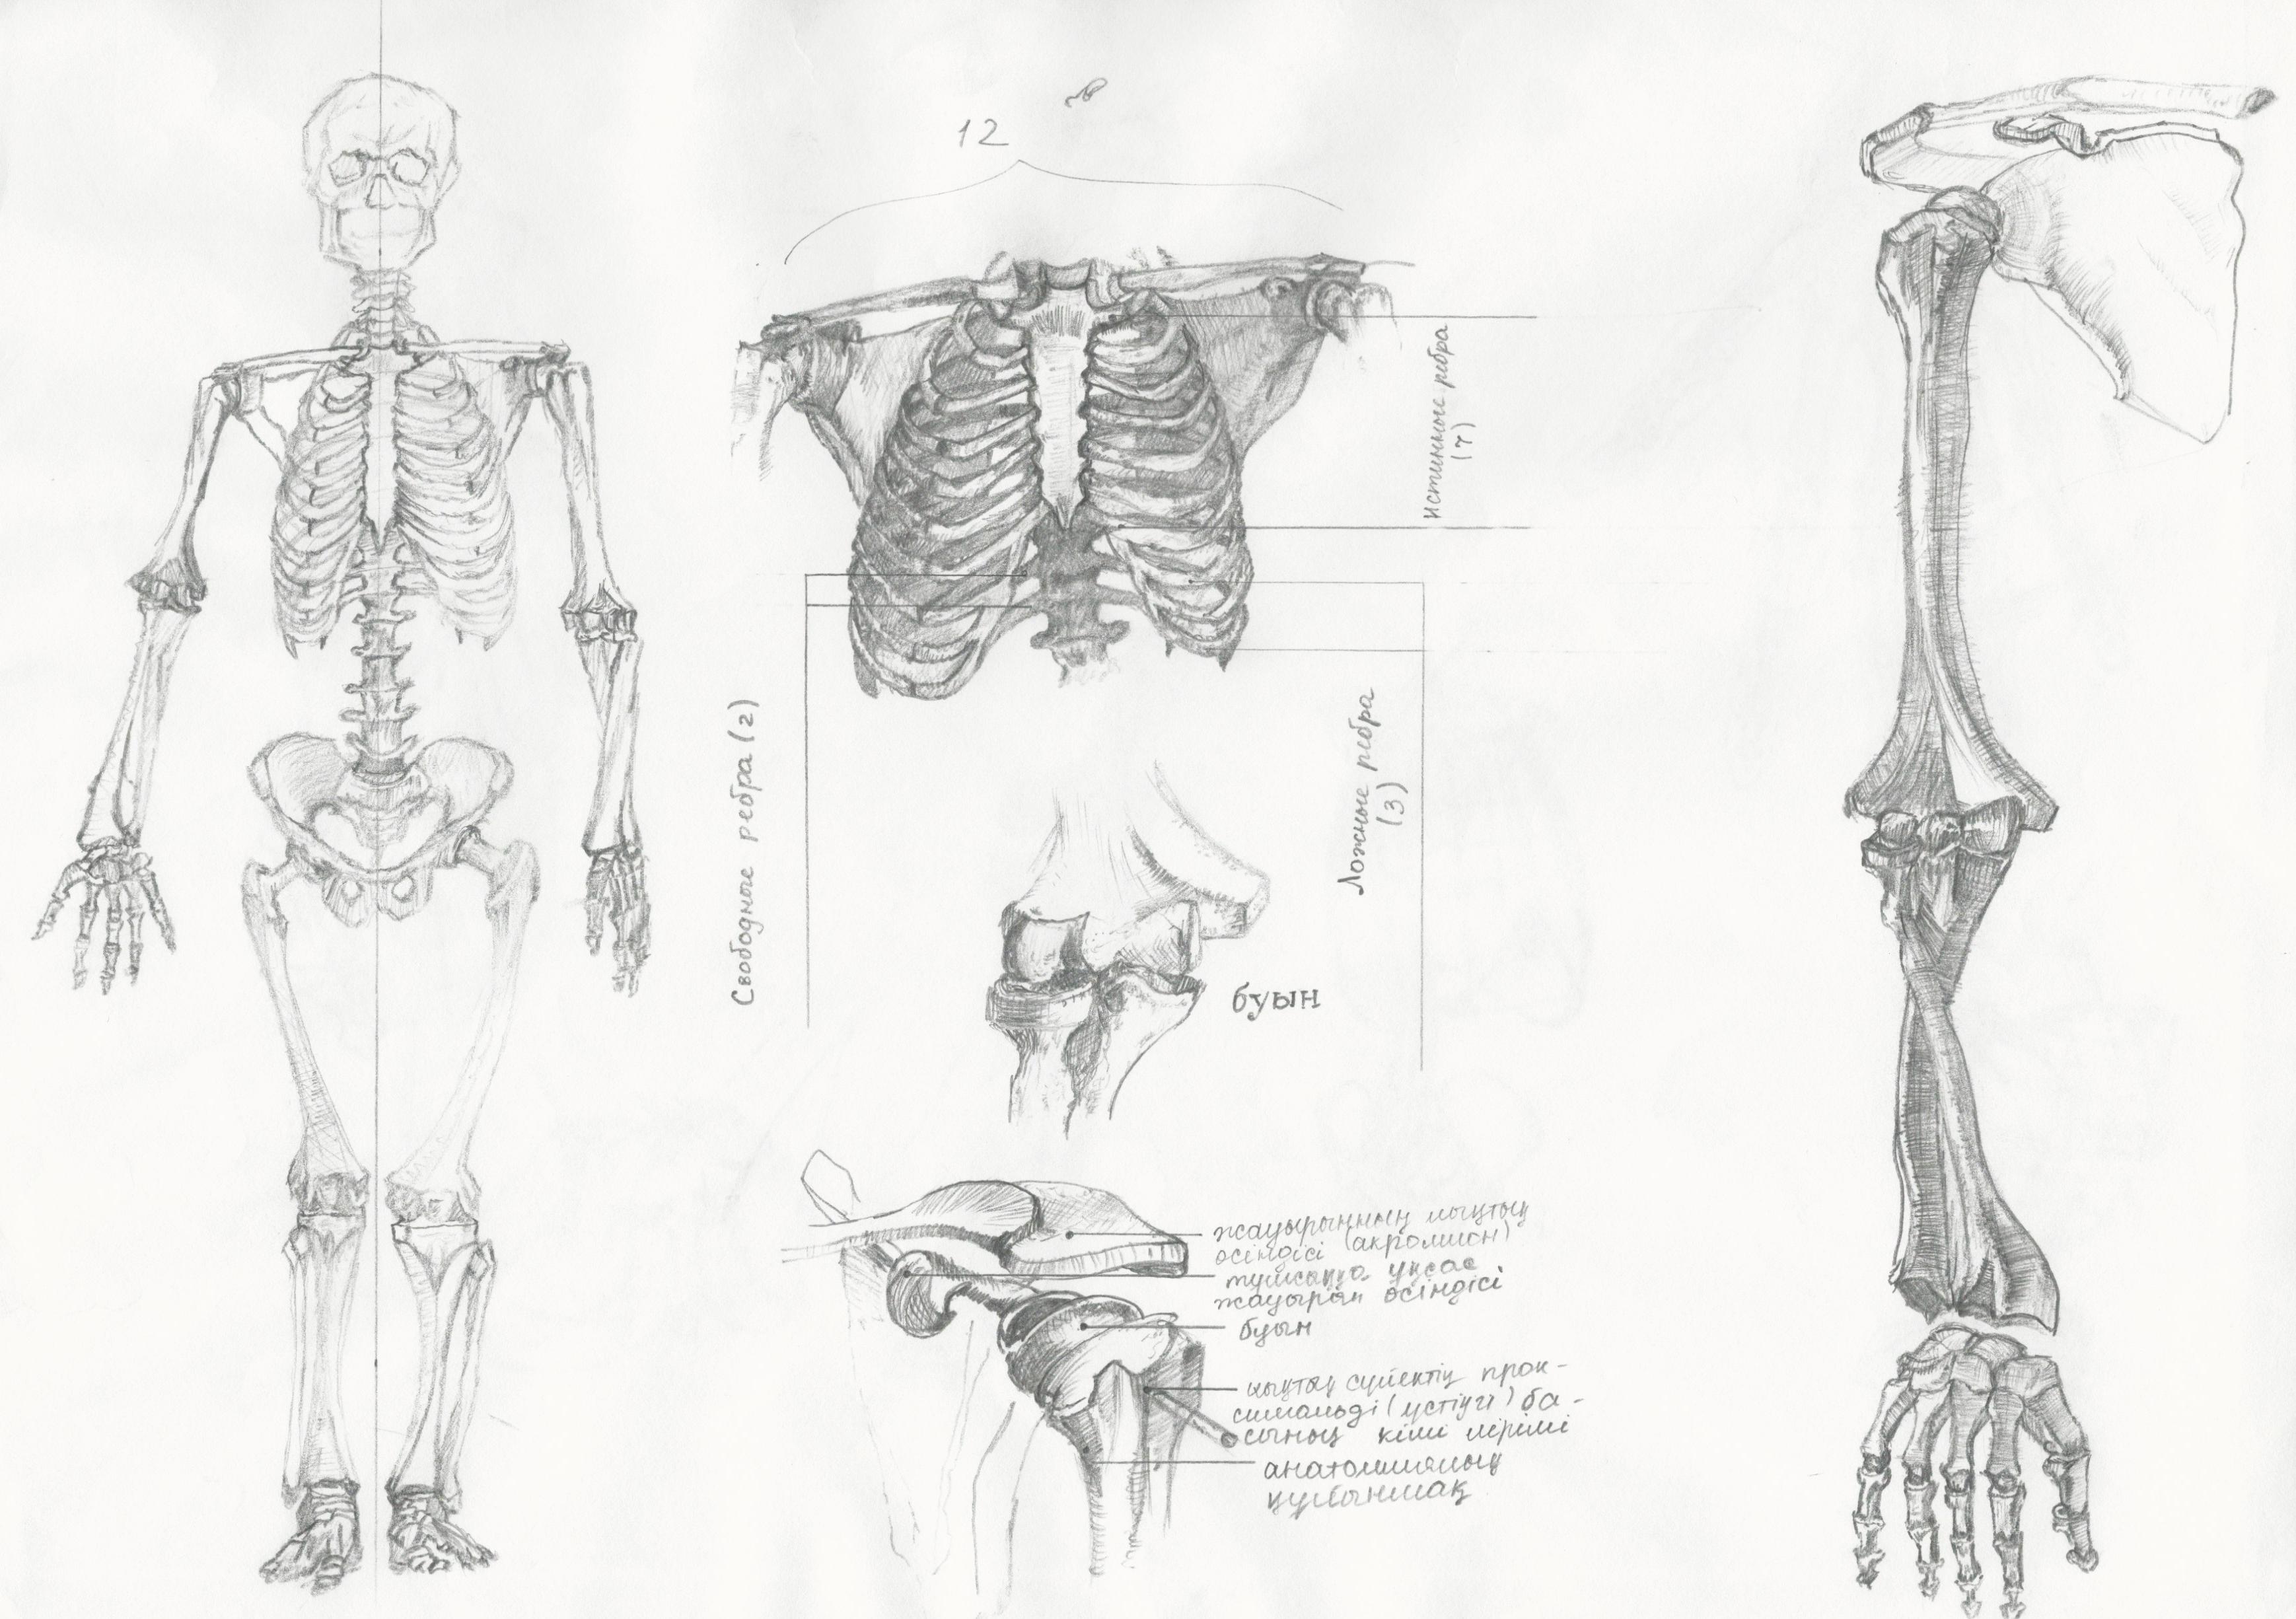 12
Истинные ребра
(7)
Свободные ребра (2)
Ложные ребра
(3)
буын
жауырынның иықтық
өсіндісі (акромион)
тұмсыққа ұқсас
жауырын өсіндісі
буын
иықтық сүйектің прок-
симальді (үстіңгі) ба-
сының кіші
анатомиялық